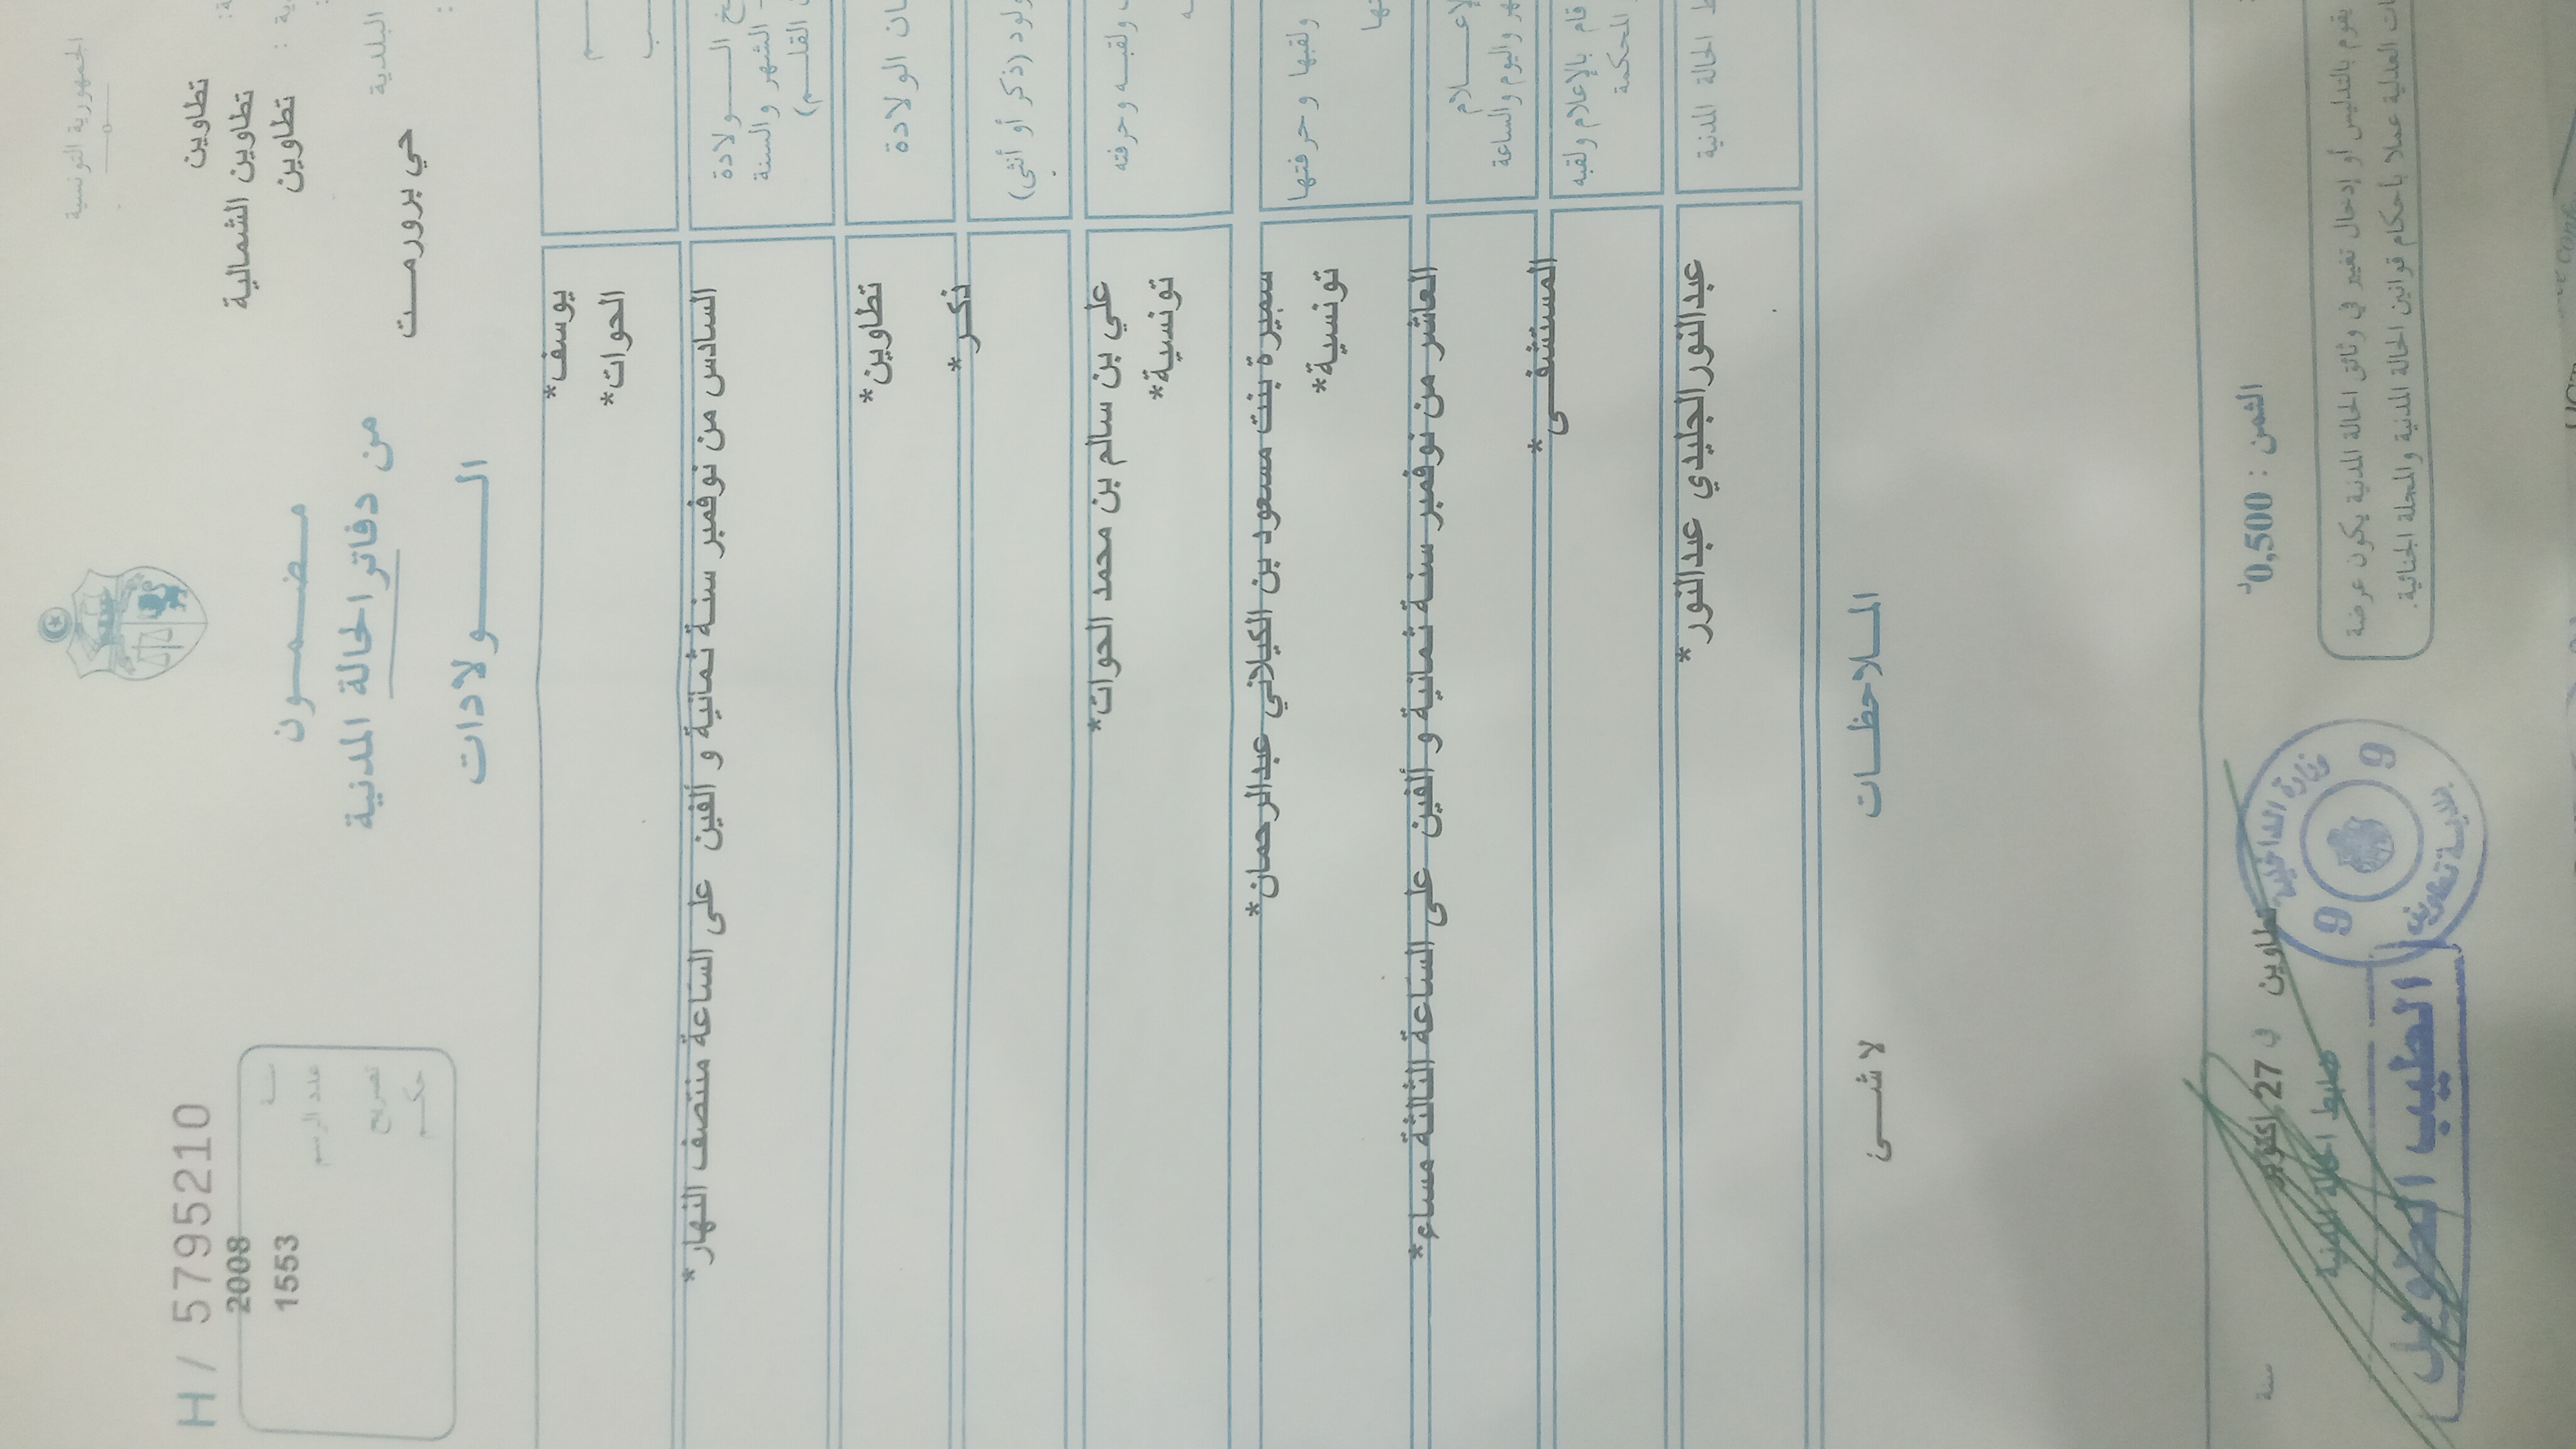 الجمهورية التونسية
تطاوين
تطاوين الشمالية
تطاوين
البلدية
حي برورمت
مضمون
من دفاتر الحالة المدنية
الولادات
H / 5795210
2008
1553
سنة
عدد الرسم
تصريح
حكم
يوسف*
الحوات*
الولادة
الشهر والسنة
القلم)
السادس من نوفمبر سنة ثمانية و ألفين على الساعة منتصف النهار*
الولادة
تطاوين*
(ذكر أو أنثى)
ذكر*
ولقبه وحرفته
علي بن سالم بن محمد الحوات*
تونسية*
ولقبها وحرفتها
سميرة بنت مسعود بن الكيلاني عبدالرحمان*
تونسية*
واليوم والساعة
العاشر من نوفمبر سنة ثمانية و ألفين على الساعة الثالثة مساء*
قام بالإعلام ولقبه
المحكمة
المستشفى*
الحالة المدنية
عبدالنورالجليدي عبدالنور*
الملاحظات
لا شئ
الثمن : 0,500د
تطاوين في 27 أكتوبر سنة
ضابط الحالة المدنية
يقوم بالتدليس أو إدخال تغيير في وثائق الحالة المدنية يكون عرضة
العدلية عملا بأحكام قوانين الحالة المدنية والمجلة الجنائية.
وزارة الداخلية
بلدية تطاوين
9 9
الطيب الحويل